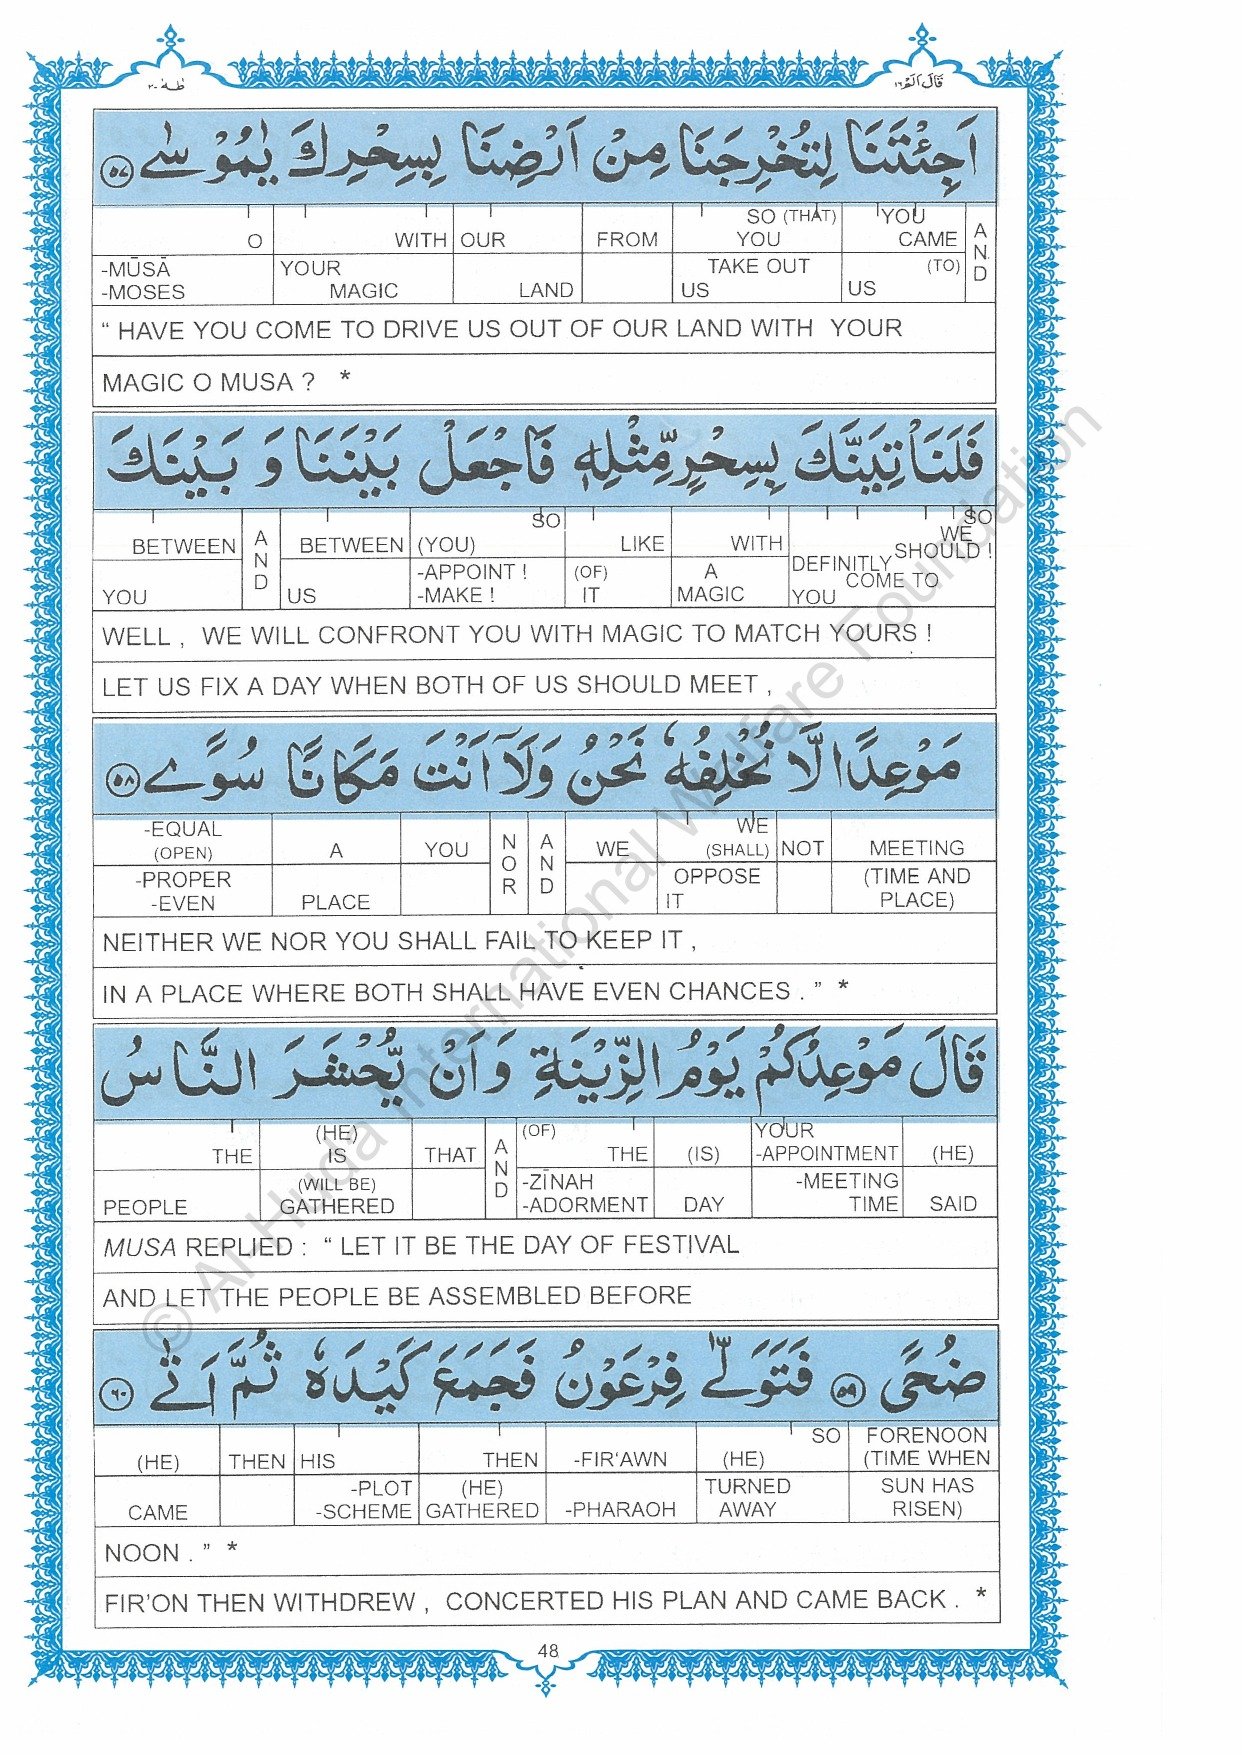 طٰهٰ ٢٠
قَالَ اَلَمْ ١٦
اَجِئْتَنَا لِتُخْرِجَنَا مِنْ اَرْضِنَا بِسِحْرِكَ يٰمُوْسٰى ٥٧
AND YOU CAME (TO) US SO (THAT) YOU TAKE OUT US FROM OUR LAND WITH YOUR MAGIC O -MŪSĀ -MOSES
“ HAVE YOU COME TO DRIVE US OUT OF OUR LAND WITH YOUR
MAGIC O MUSA ? *
فَلَنَاْتِيَنَّكَ بِسِحْرٍ مِّثْلِهٖ فَاجْعَلْ بَيْنَنَا وَ بَيْنَكَ
SO WE SHOULD ! DEFINITLY COME TO YOU WITH A MAGIC LIKE (OF) IT SO (YOU) -APPOINT ! -MAKE ! BETWEEN US AND BETWEEN YOU
WELL , WE WILL CONFRONT YOU WITH MAGIC TO MATCH YOURS !
LET US FIX A DAY WHEN BOTH OF US SHOULD MEET ,
مَوْعِدًا لَّا نُخْلِفُهٗ نَحْنُ وَلَاۤ اَنْتَ مَكَانًا سُوًى ٥٨
MEETING (TIME AND PLACE) NOT WE (SHALL) OPPOSE IT WE AND NOR YOU A PLACE -EQUAL (OPEN) -PROPER -EVEN
NEITHER WE NOR YOU SHALL FAIL TO KEEP IT ,
IN A PLACE WHERE BOTH SHALL HAVE EVEN CHANCES . ” *
قَالَ مَوْعِدُكُمْ يَوْمُ الزِّيْنَةِ وَ اَنْ يُّحْشَرَ النَّاسُ
(HE) SAID YOUR -APPOINTMENT -MEETING TIME (IS) DAY (OF) THE -ZĪNAH -ADORMENT AND THAT (HE) IS (WILL BE) GATHERED THE PEOPLE
MUSA REPLIED : “ LET IT BE THE DAY OF FESTIVAL
AND LET THE PEOPLE BE ASSEMBLED BEFORE
ضُحًى ٥٩ فَتَوَلّٰى فِرْعَوْنُ فَجَمَعَ كَيْدَهٗ ثُمَّ اَتٰى ٦٠
FORENOON (TIME WHEN SUN HAS RISEN) SO (HE) TURNED AWAY -FIR‘AWN -PHARAOH THEN (HE) GATHERED HIS -PLOT -SCHEME THEN (HE) CAME
NOON . ” *
FIR’ON THEN WITHDREW , CONCERTED HIS PLAN AND CAME BACK . *
48
© Al-Huda International Welfare Foundation